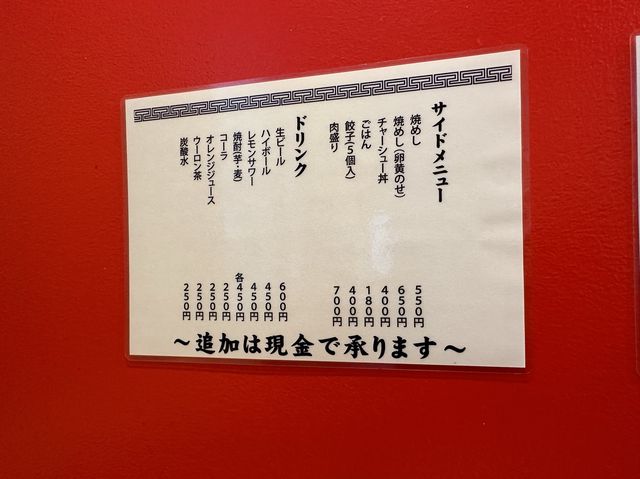 サイドメニュー
焼めし 550円
焼めし(卵黄のせ) 650円
チャーシュー丼 400円
ごはん 180円
餃子(5個入) 400円
肉盛り 700円
ドリンク
生ビール 600円
ハイボール 450円
レモンサワー 450円
焼酎(芋・麦) 各450円
コーラ 250円
オレンジジュース 250円
ウーロン茶 250円
炭酸水 250円
～追加は現金で承ります～